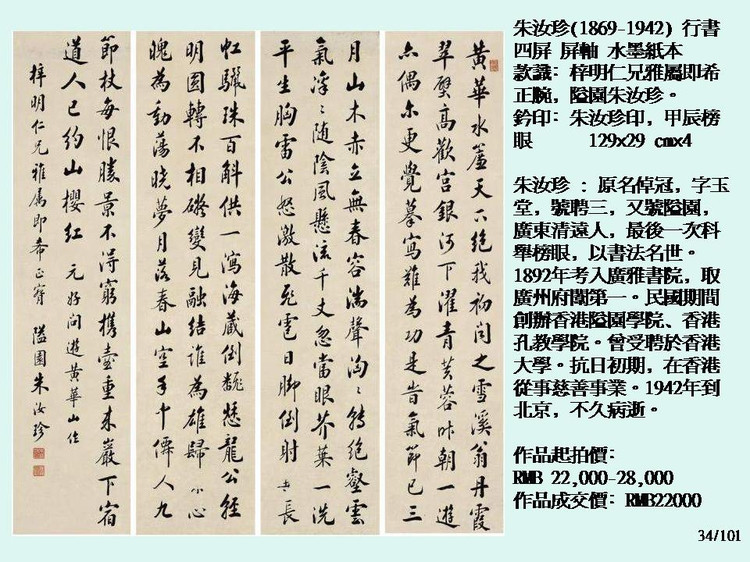 黃華水簾天下絕我初聞之雪溪翁丹霞
翠壁高歡宮銀河下濯青芙蓉昨朝一遊
亦偶尔更覺摹寫難為功是昔氣節已三
月山木赤立無春容湍聲洶〻轉絕壑雲
氣浮〻随陰風懸流千丈忽當眼芥葉一洗
平生胸雷公怒激散飛雹日脚倒射垂長
虹驪珠百斛供一瀉海藏倒翻愁龍公輕
明圓轉不相礙變見融結誰為雄歸心
魄為動蕩曉夢月落春山空手中僊人九
節杖每恨勝景不得窮攜壺重來巖下宿
道人已約山櫻紅 元好問遊黃華山作
梓明仁兄雅属即希正 隘園朱汝珍
朱汝珍(1869-1942) 行書
四屏 屏軸 水墨紙本
款識: 梓明仁兄雅屬即希
正腕，隘園朱汝珍。
鈐印: 朱汝珍印，甲辰榜
眼 129x29 cmx4
朱汝珍 : 原名倬冠，字玉
堂，號聘三，又號隘園，
廣東清遠人，最後一次科
舉榜眼，以書法名世。
1892年考入廣雅書院，取
廣州府闈第一。民國期間
創辦香港隘園學院、香港
孔教學院。曾受聘於香港
大學。抗日初期，在香港
從事慈善事業。1942年到
北京，不久病逝。
作品起拍價:
RMB 22,000-28,000
作品成交價: RMB22000
34/101